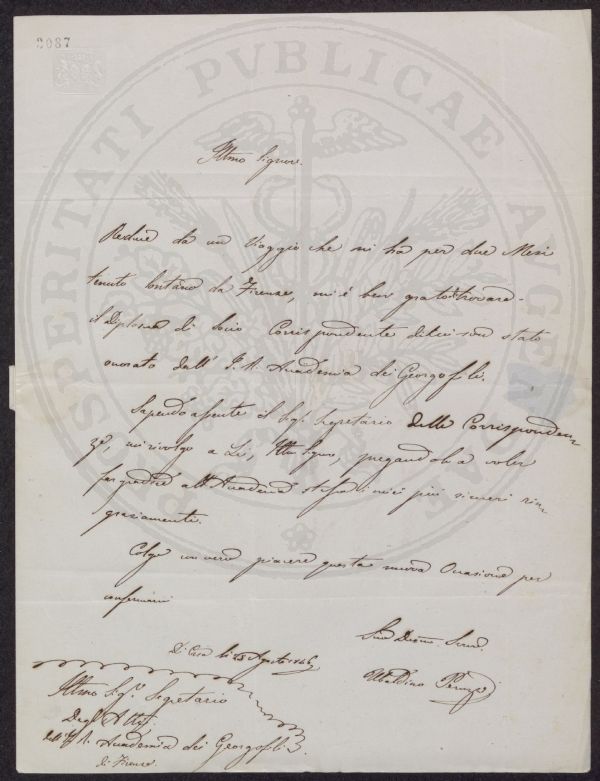 2087
PROSPERITATI PVBLICAE AVGENDAE
Illmo Signore
Reduce da un Viaggio che mi ha per due Mesi
tenuto lontano da Firenze, mi è ben grato ritrovare
il Diploma di Socio Corrispondente di cui son stato
onorato dall' I. R. Accademia dei Georgofili.
Sapendo assente il Sigr. Segretario delle Corrisponden
ze, mi rivolgo a Lei, Illmo Signore, pregandola a voler
far gradire all'Accademia stessa i miei più sinceri rin
graziamenti.
Colgo con vero piacere questa nuova Occasione per
confermarmi
Suo Devmo. Servo.
Ubaldino Peruzzi
Di Casa li Agosto
Illmo Sigr. Segretario
Degli Atti
dell'I. R. Accademia dei Georgofili
di Firenze